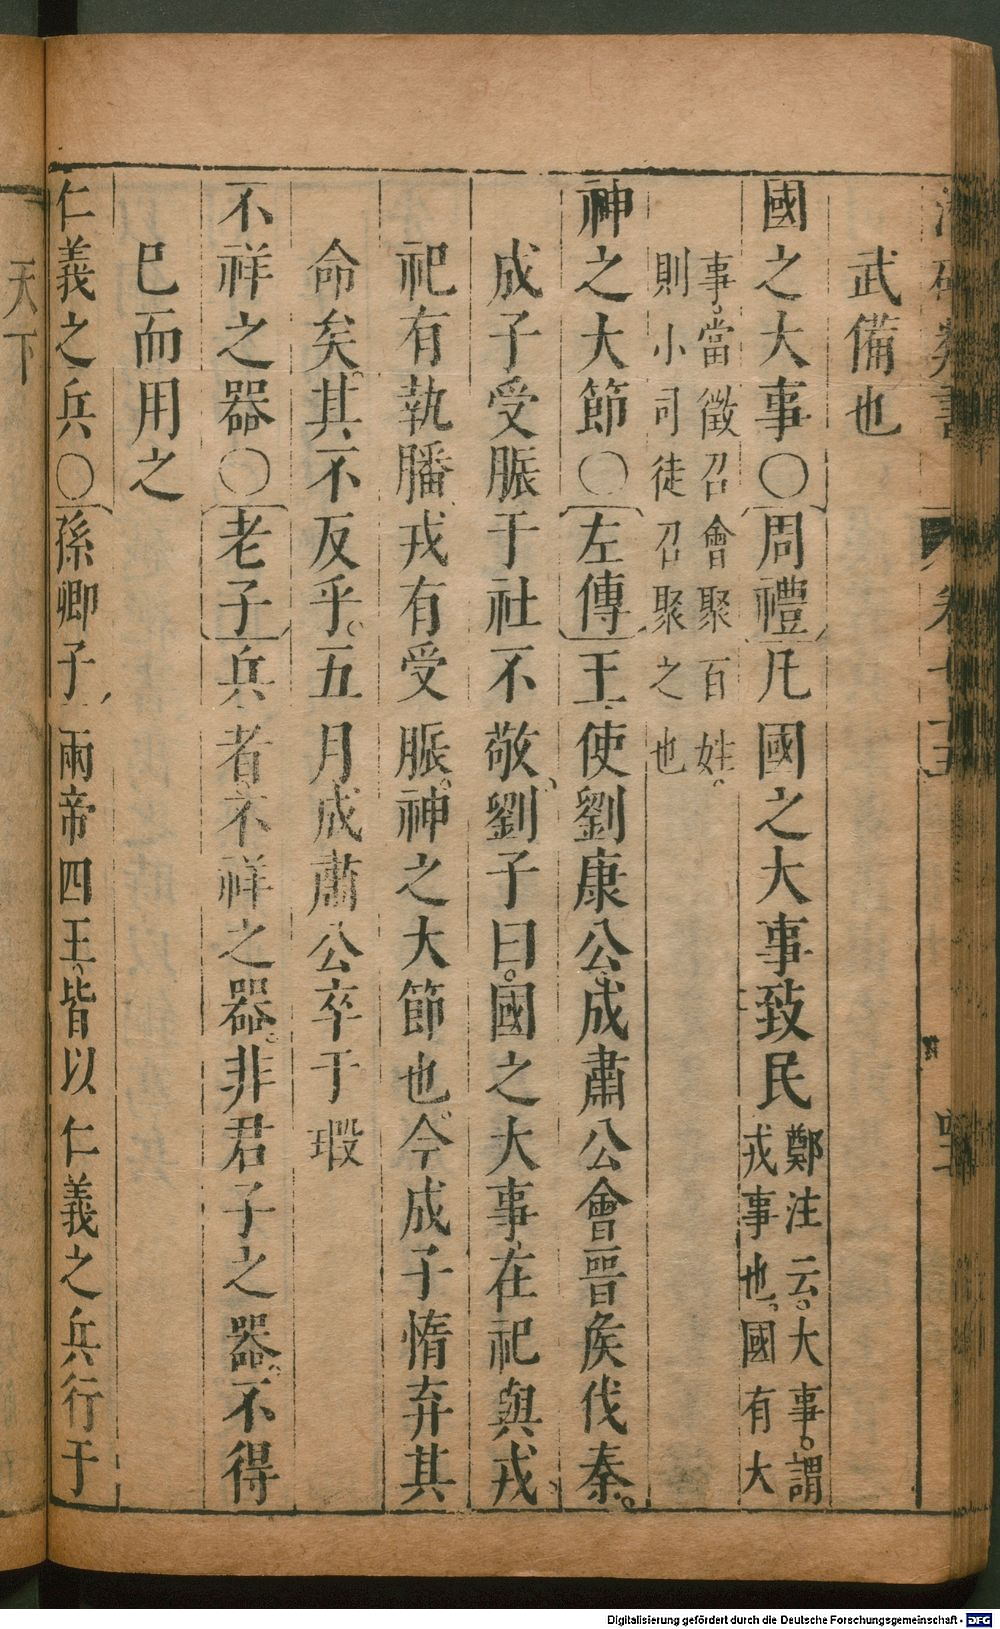 武備也
國之大事○周禮凡國之大事致民鄭注云。大事。謂
戎事也、國有大
事。當徵召會聚百姓。
則小司徒召聚之也
神之大節○左傳王使劉康公。成肅公會晉侯伐秦。
成子受脤于社不敬、劉子曰。國之大事在祀與戎
祀有執膰戎有受脤。神之大節也。今成子惰弃其
命矣。其不反乎。五月成肅公卒于瑕
不祥之器○老子兵者不祥之器。非君子之器。不得
已而用之
仁義之兵○孫卿子兩帝四王皆以仁義之兵行于
天下
Digitalisierung gefördert durch die Deutsche Forschungsgemeinschaft - DFG